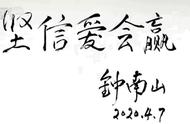 坚信爱会赢
钟南山
2020.4.7